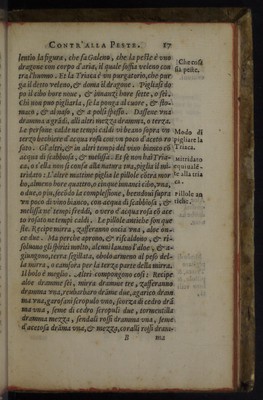 CONTR'ALLA PESTE. 17
lentio la figura, che fa Galeno, che la peste è uno
dragone con corpo d'aria, il quale soffia veleno con
tra l'huomo. Et la Triaca è un purgatorio, che pur
ga il detto veleno, & doma il dragone. Piglisi do
po il cibo hore noue, & innanzi hore sette, o sei.
Chi non può pigliarla, se la ponga al cuore, & sto-
maco, & al naso, & a polsi spesso. Dassene una
dramma a' grādi, alli altri mezza dramma, o terza.
Le persone calde ne tempi caldi vi beano sopra un
terzo bicchiere d'acqua rosa con un poco d'aceto ro
sato. Gl'altri, & in altri tempi del vino bianco cō
acqua di scabbiosa, & melissa. Et se non hai Tria-
ca, o s'ella non si confà alla natura tua, piglia il mi-
tridato: L'altre mattine piglia le pillole cōtra mor
bo, almeno hore quattro, o cinque innanzi cibo, una,
o due, o piu, secōdo la complessione, beendoui sopra
un poco di vino bianco, con acqua di scabbiosa, &
melissa ne' tempi freddi, o vero d'acqua rosa cō ace
to rosato ne tempi caldi. Le pillole antiche son que
ste. Recipe mirra, zafferano oncia una, aloe on-
ce due. Ma perche aprono, & riscaldono, & ri-
soluono gli spiriti molto, alcuni lauano l'aloe, & a-
giungono, terra sigillata, bolo armeno al peso del-
la mirra, o canfora per la terza parte della mirra.
Il bolo è meglio. Altri compongono cosi: Recipe
aloe dramme sei, mirra dramme tre, zafferano
dramma una, reubarbaro drāme due, agarico dram
ma una, garofani scropulo uno, scorza di cedro drā
ma una, seme di cedro scropuli due, tormentilla
dramma mezza, sendali rossi dramma una, seme
d'acetosa drāma una, & mezza, coralli rossi dram-
B ma
Che cosa
sia peste.
Modo di
pigliare la
Triaca.
Mitridato
Pillole an
tiche.